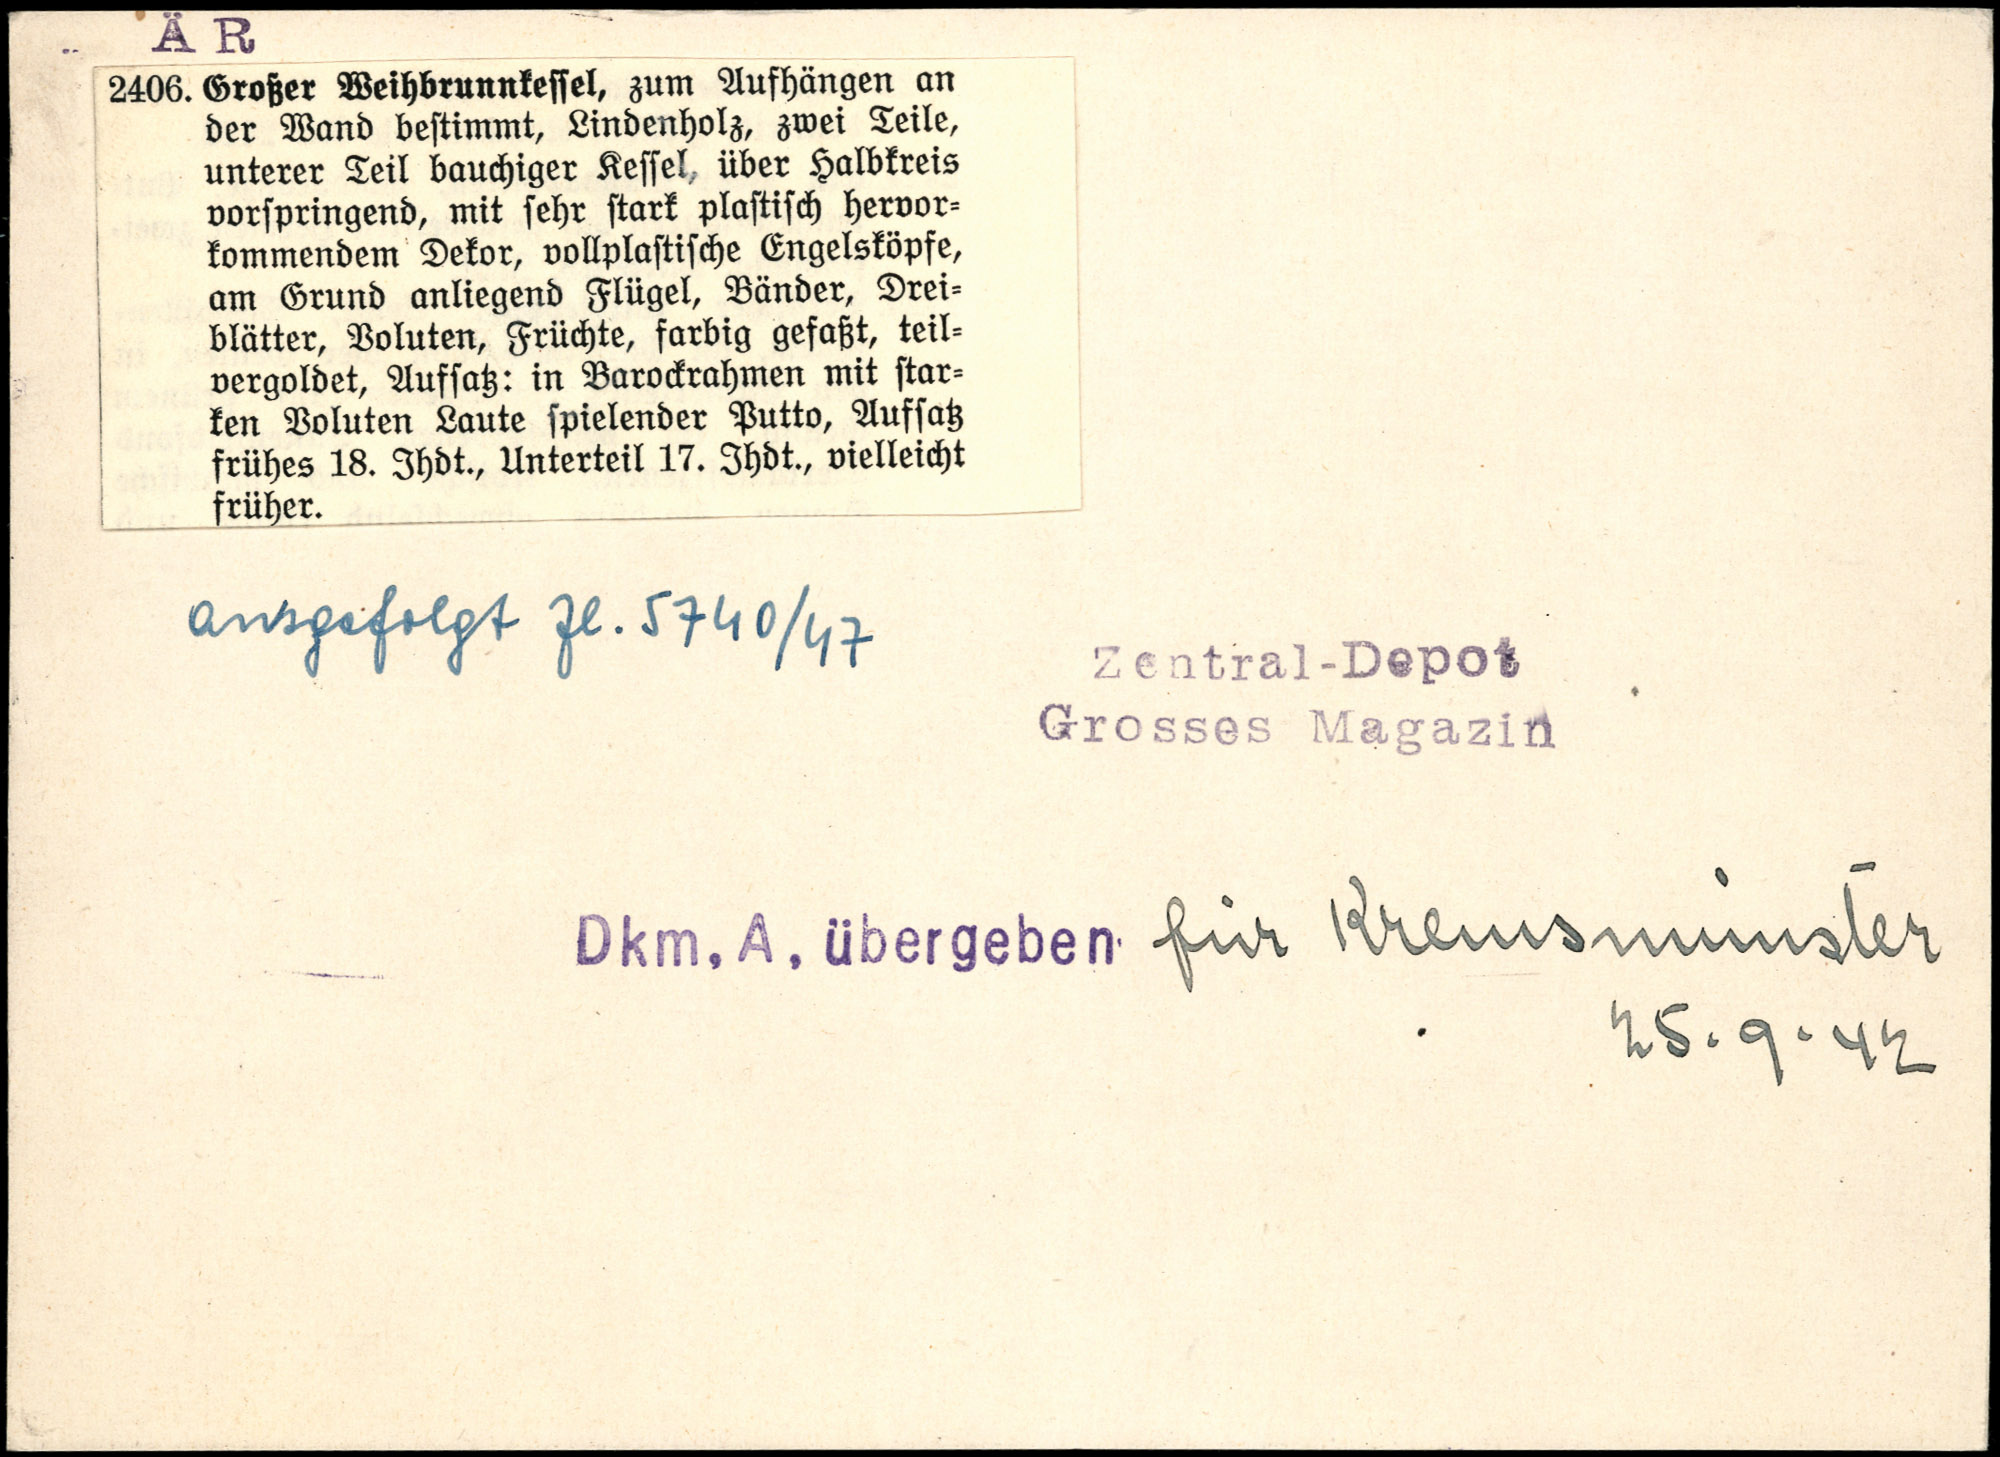 ÄR
2406. Großer Weihbrunnkessel, zum Aufhängen an
der Wand bestimmt, Lindenholz, zwei Teile,
unterer Teil bauchiger Kessel, über Halbkreis
vorspringend, mit sehr stark plastisch hervor-
kommendem Dekor, vollplastische Engelsköpfe,
am Grund anliegend Flügel, Bänder, Drei-
blätter, Voluten, Früchte, farbig gefaßt, teil-
vergoldet, Aufsatz: in Barockrahmen mit star-
ken Voluten Laute spielender Putto, Aufsatz
frühes 18. Jhdt., Unterteil 17. Jhdt., vielleicht
früher.
ausgefolgt Zl. 5740/47
Zentral-Depot
Grosses Magazin
Dkm. A. übergeben für Kremsmünster
25.9.42